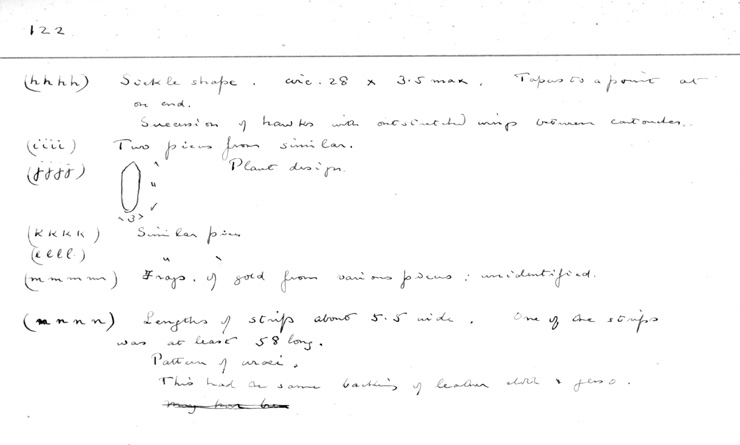 122
(hhhh) Sickle shape. circ. 28 x 3.5 max. Tapers to a point at
on end.
Succession of hawks with outstretched wings between cartouches.
(iiii) Two pieces from similar.
(jjjj) Plant design.
"
<3>
(kkkk) Similar piece
(llll) " "
(mmmm) Frags. of gold from various pieces: unidentified.
(nnnn) Lengths of strip about 5.5 wide. One of the strips
was at least 58 long.
Pattern of uraei.
This had the same backing of leather cloth & gesso.
may have been